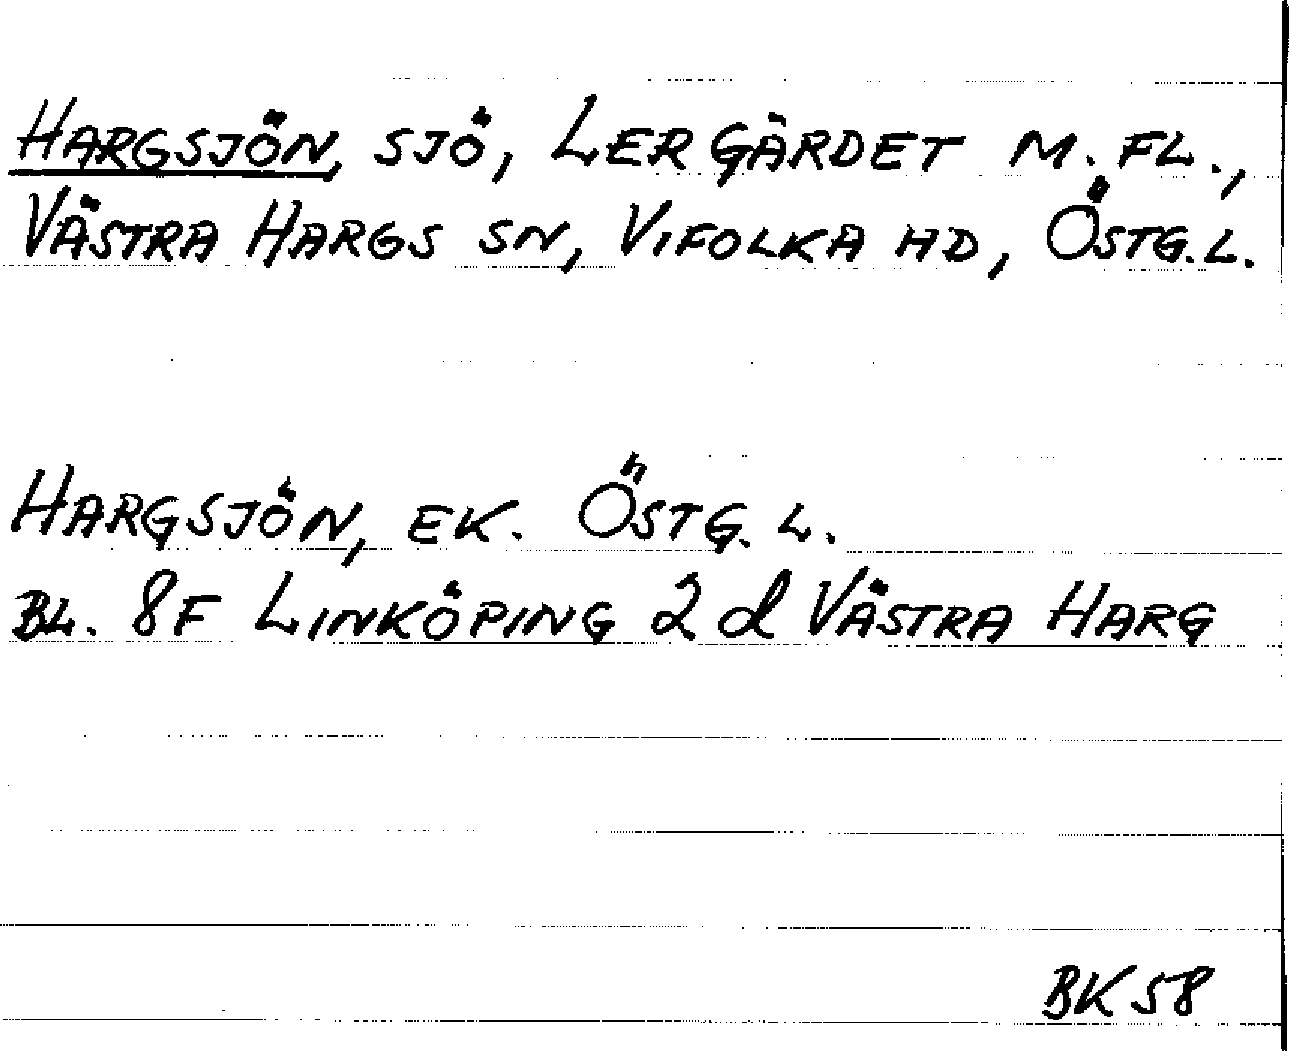 HARGSJÖN, SJÖ, LERGÄRDET M. FL.,
VÄSTRA HARGS SN, VIFOLKA HD, ÖSTG. L.
HARGSJÖN, EK. ÖSTG. L.
BL. 8F LINKÖPING 2 d VÄSTRA HARG
BK 58